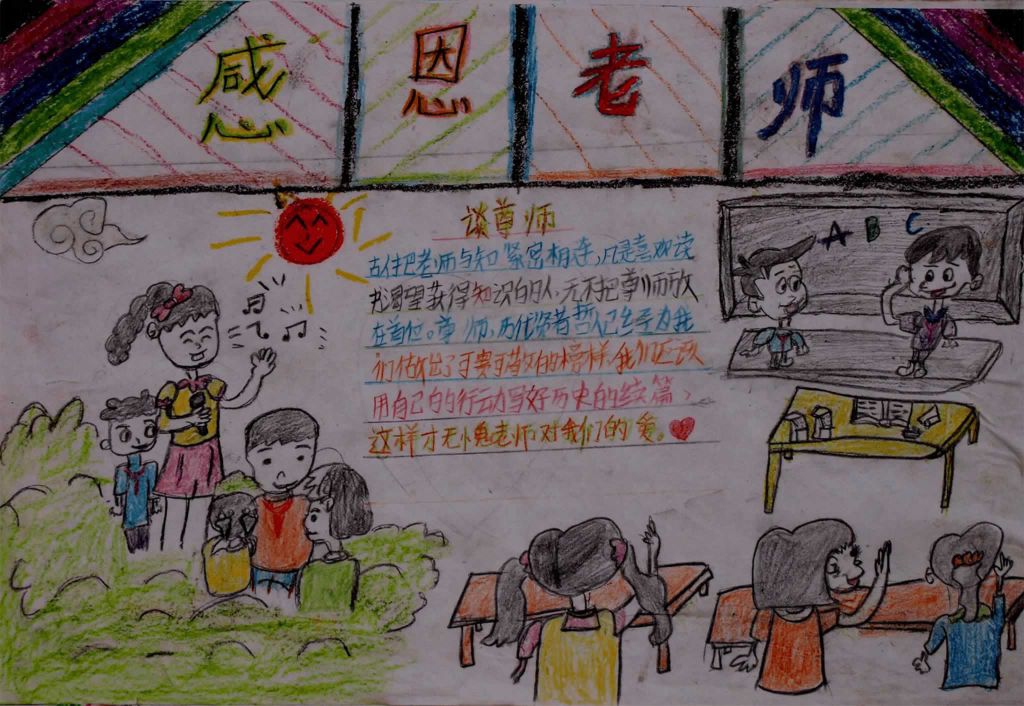 感恩老师
谈尊师
古往把老师与知紧密相连,凡是喜欢读
书渴望获得知识的人,无不把尊师放
在首位。尊师,历代 者哲已经为我
们做出了可 可敬的榜样,我们还该
用自己的的行动写好历史的续篇,
这样才无愧老师对我们的爱。
A B C